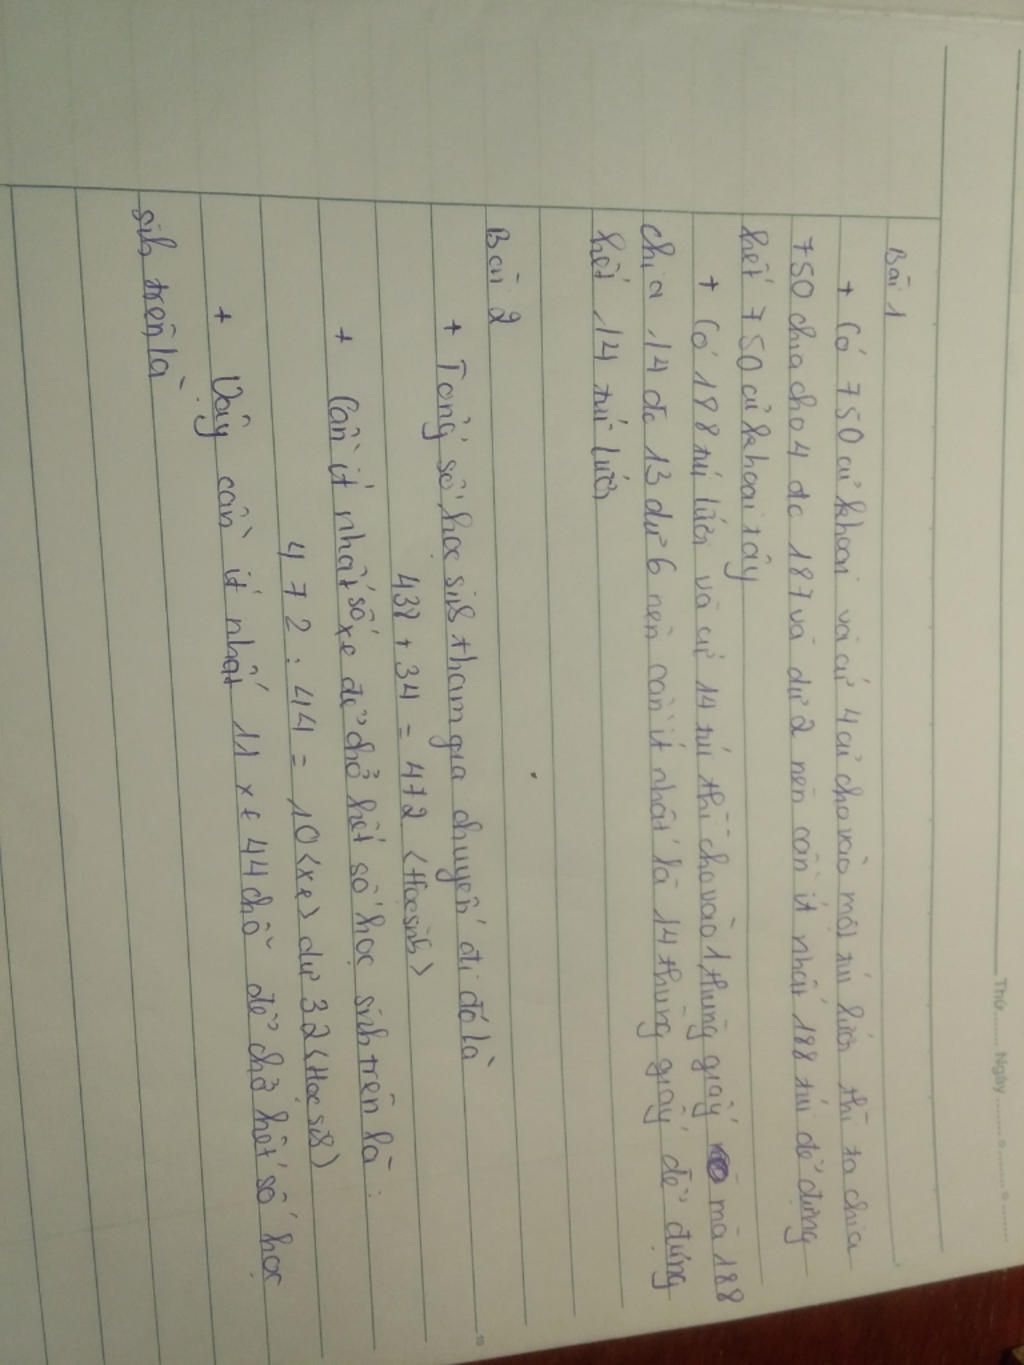 Thứ ...... Ngày ......
Bài 1
+ Có 750 củ khoai và cứ 4 củ cho vào mỗi túi lưới thì ta chia
750 chia cho 4 đc 187 và dư 2 nên cần ít nhất 188 túi để đựng
hết 750 củ khoai tây
+ Có 188 túi lưới và cứ 14 túi thì cho vào 1 thùng giấy mà 188
chia 14 đc 13 dư 6 nên cần ít nhất là 14 thùng giấy để đựng
hết 14 túi lưới
Bài 2
+ Tổng số học sinh tham gia chuyến đi đó là
438 + 34 = 472 <Học sinh>
+ Cần ít nhất số xe để chở hết số học sinh trên là :
472 : 44 = 10 <xe> dư 32 <Học sinh>
+ Vậy cần ít nhất 11 xe 44 chỗ để chở hết số học
sinh trên là